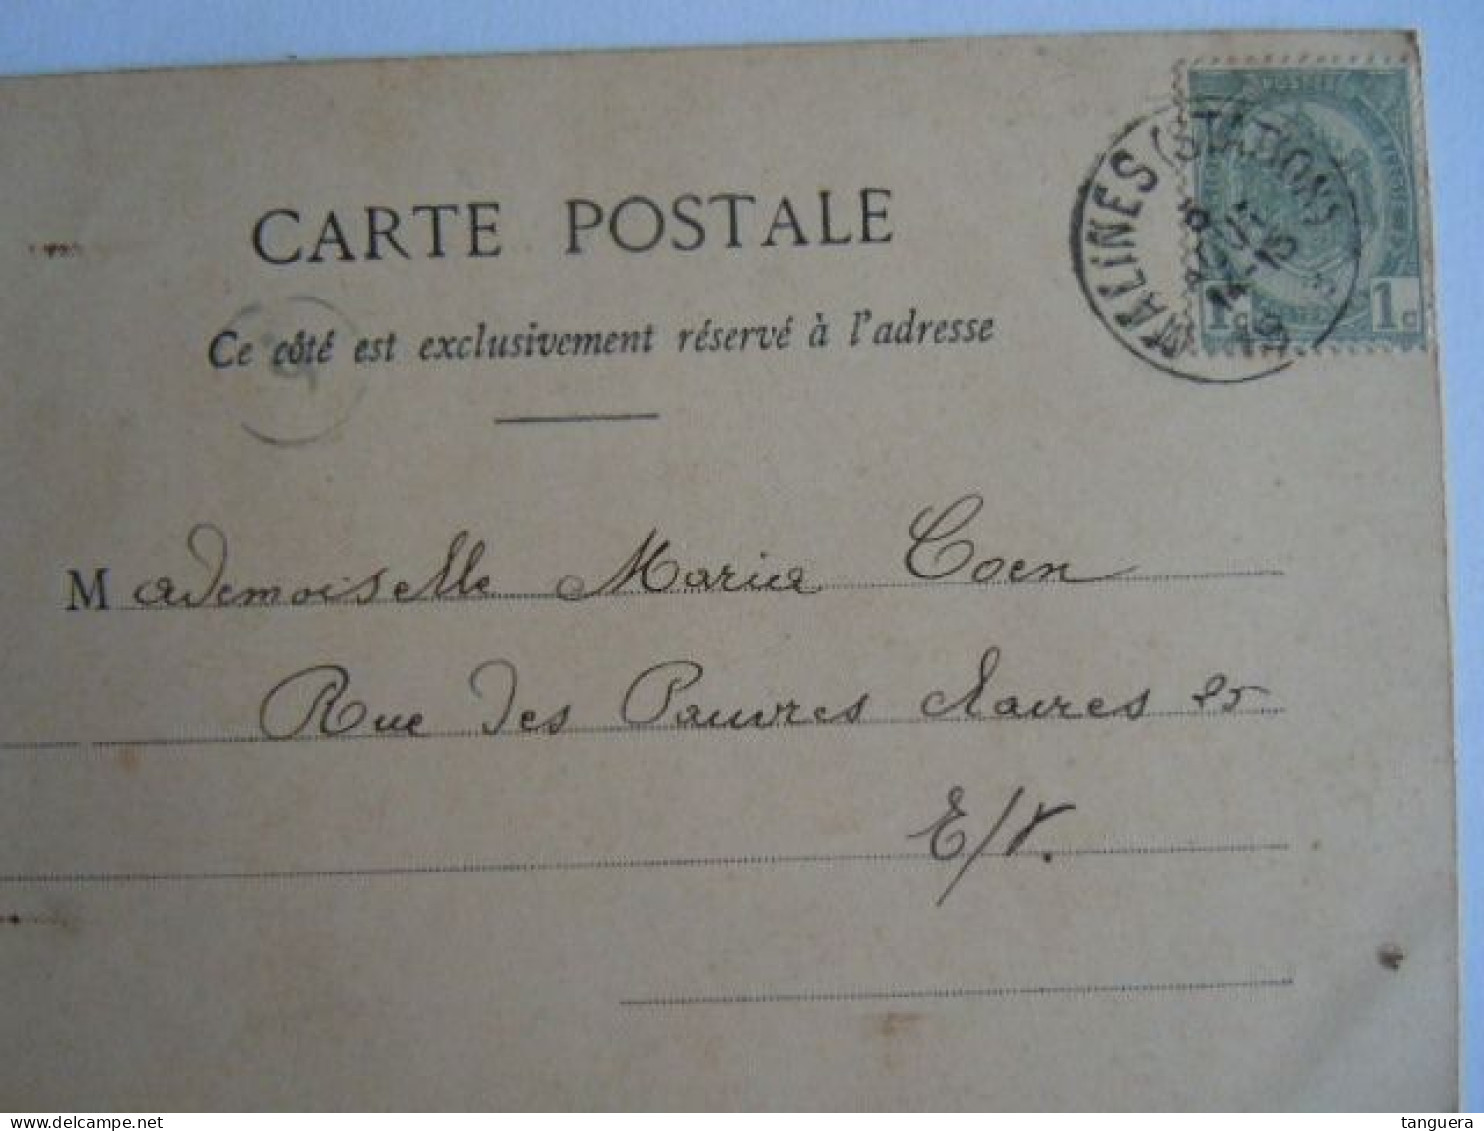 CARTE POSTALE
Ce côté est exclusivement réservé à l'adresse
MALINES (STATION)
14-15
1c 1c
Mademoiselle Maria Coen
Rue des Pauvres Claires 25
E/V.
tanguera